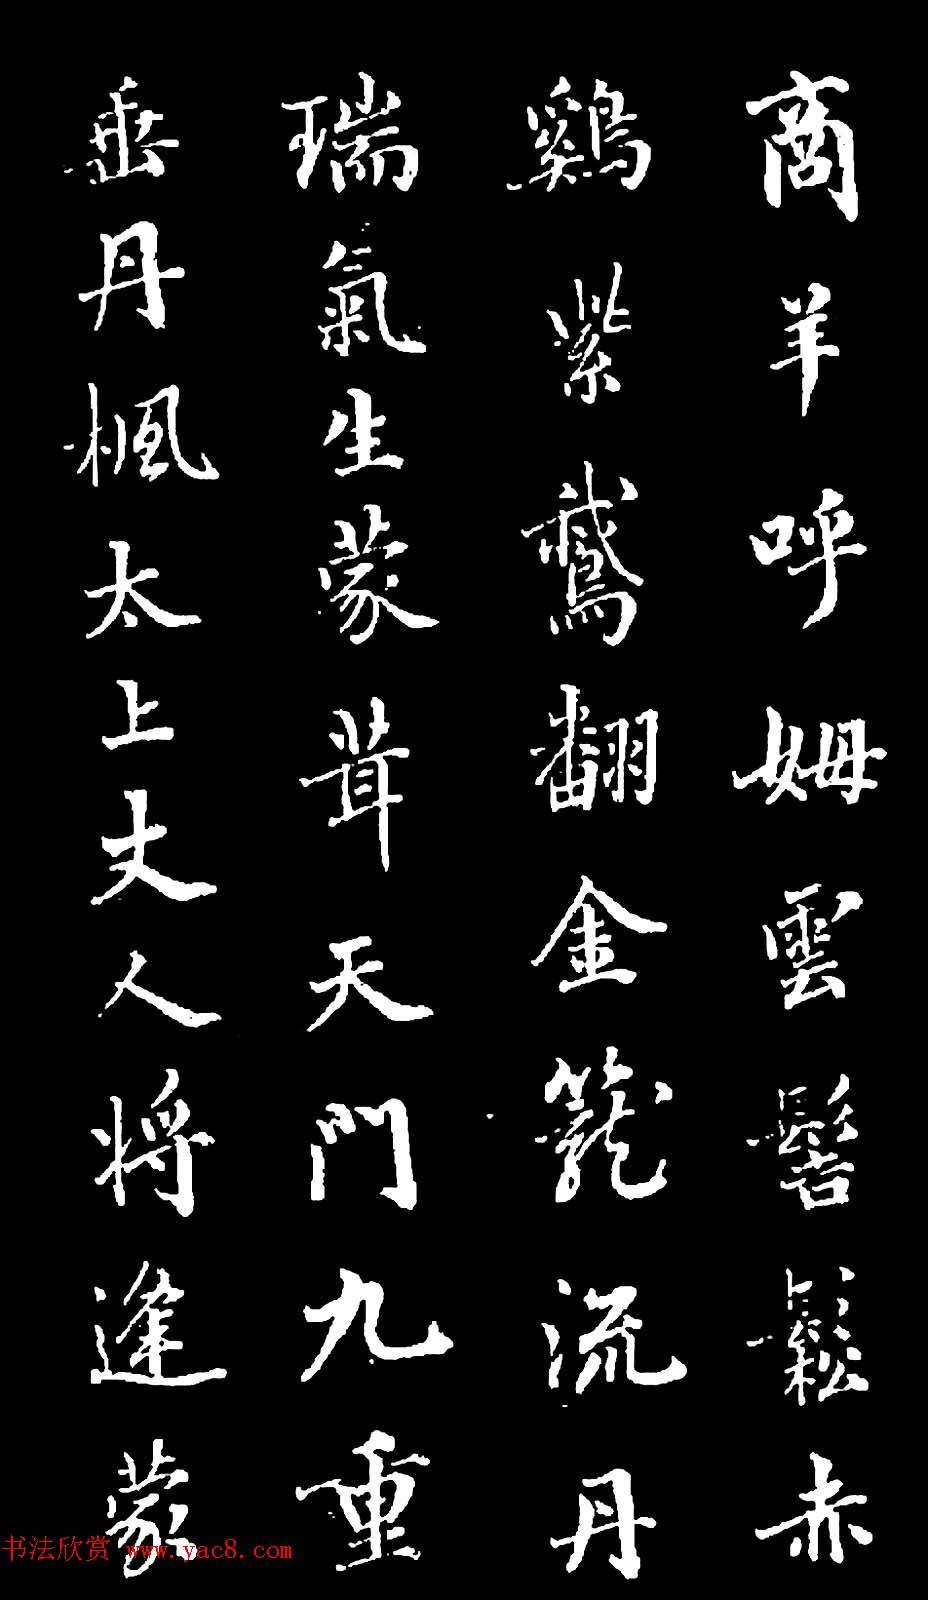 商羊呼姆雲髻鬆赤
鷄紫鸞翻金籠流丹
瑞氣生蒙茸天門九重
垂丹楓太上丈人将逢蒙
书法欣赏 www.yac8.com